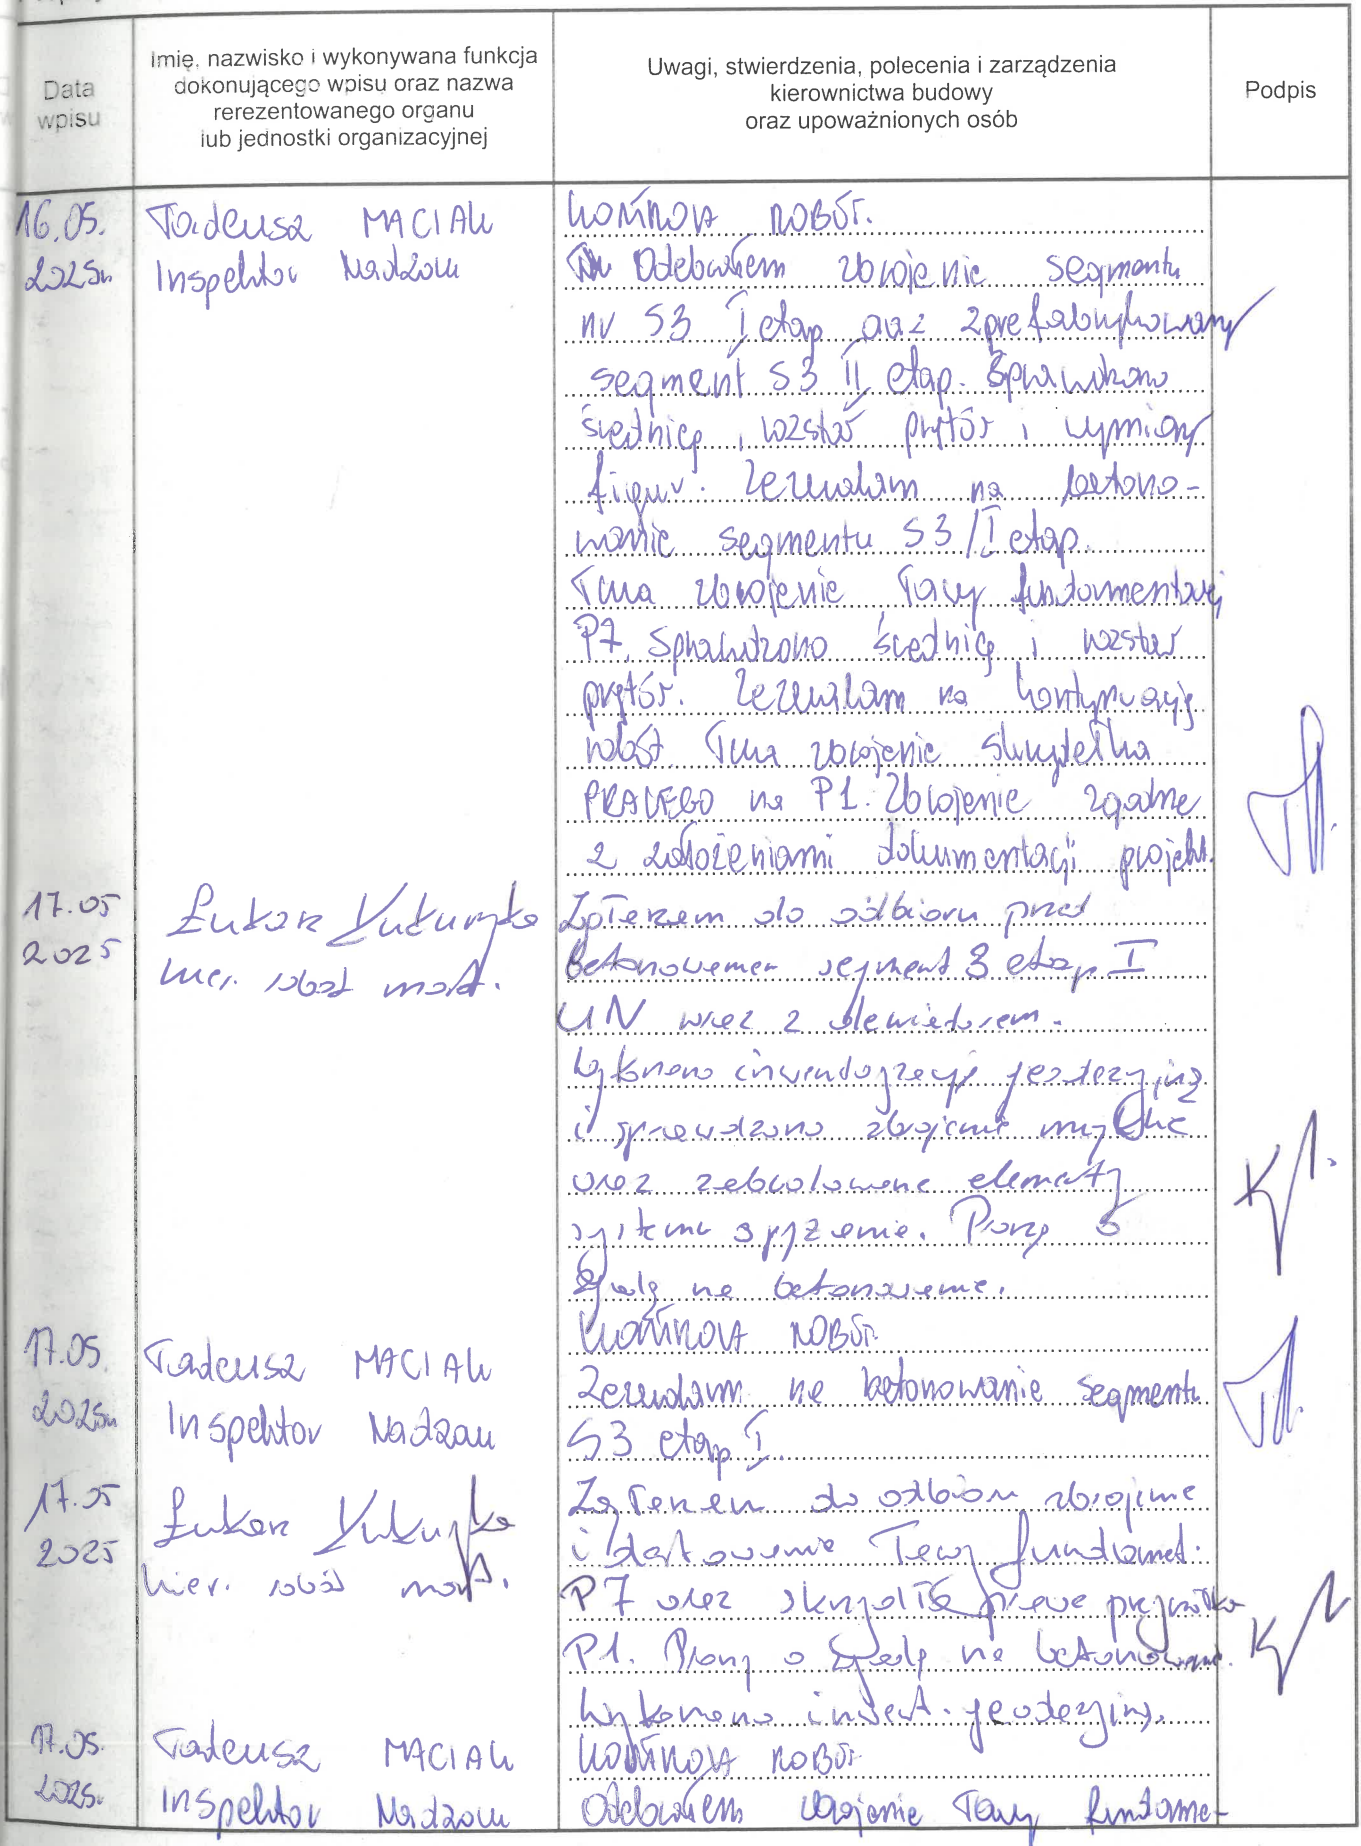 Data
wpisu
Imię, nazwisko i wykonywana funkcja
dokonującego wpisu oraz nazwa
rerezentowanego organu
lub jednostki organizacyjnej
Uwagi, stwierdzenia, polecenia i zarządzenia
kierownictwa budowy
oraz upoważnionych osób
Podpis
16.05.
2025r.
Tadeusz MACIAK
Inspektor Nadzoru
KONTROLA ROBÓT.
Odebrałem zbrojenie segmentu
nr S3 I etap oraz zprefabrykowany
segment S3 II etap. Sprawdzono
średnicę, rozstaw prętów i wymiary
figur. Zezwalam na betono-
wanie segmentu S3/I etap.
Trwa zbrojenie ławy fundamentowej
P7. Sprawdzono średnicę i rozstaw
prętów. Zezwalam na kontynuację
robót. Trwa zbrojenie skrzydełka
PRAWEGO na P1. Zbrojenie zgodne
z założeniami dokumentacji projekt.
17.05
2025
Łukasz
kier. robót most.
Zgłaszam do odbioru przed
betonowaniem segment 3 etap I
UN wraz z
Wykonano inwentaryzację geodezyjną
i sprawdzono zbrojenie miękkie
oraz zabudowane elementy
systemu sprężenia. Proszę o
zgodę na betonowanie.
17.05.
2025r.
Tadeusz MACIAK
Inspektor Nadzoru
KONTROLA ROBÓT
Zezwalam na betonowanie segmentu
S3 etap I.
17.05
2025
Łukasz
kier. robót most.
Zgłaszam do odbioru zbrojenie
i ławy fundament.
P7 oraz skrzydła prawe przyczółka
P1. Proszę o zgodę na betonowanie.
Wykonano inwent. geodezyjną.
17.05.
2025r.
Tadeusz MACIAK
Inspektor Nadzoru
KONTROLA ROBÓT
Odebrałem zbrojenie ławy fundame-